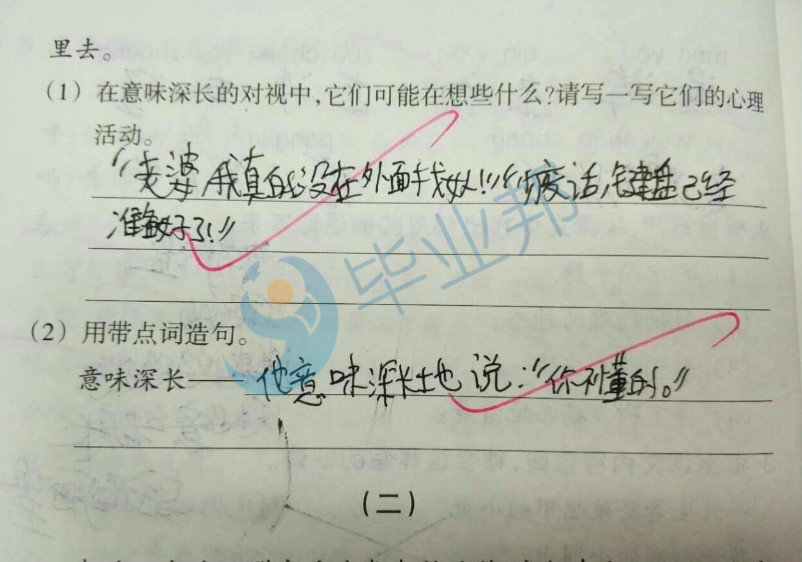 里去。
(1) 在意味深长的对视中,它们可能在想些什么?请写一写它们的心理
活动。
“老婆,我真的没在外面找女人!”“废话,键盘已经
准备好了!”
(2) 用带点词造句。
意味深长——他意味深长地说:“你不懂的。”
(二)
毕业邦